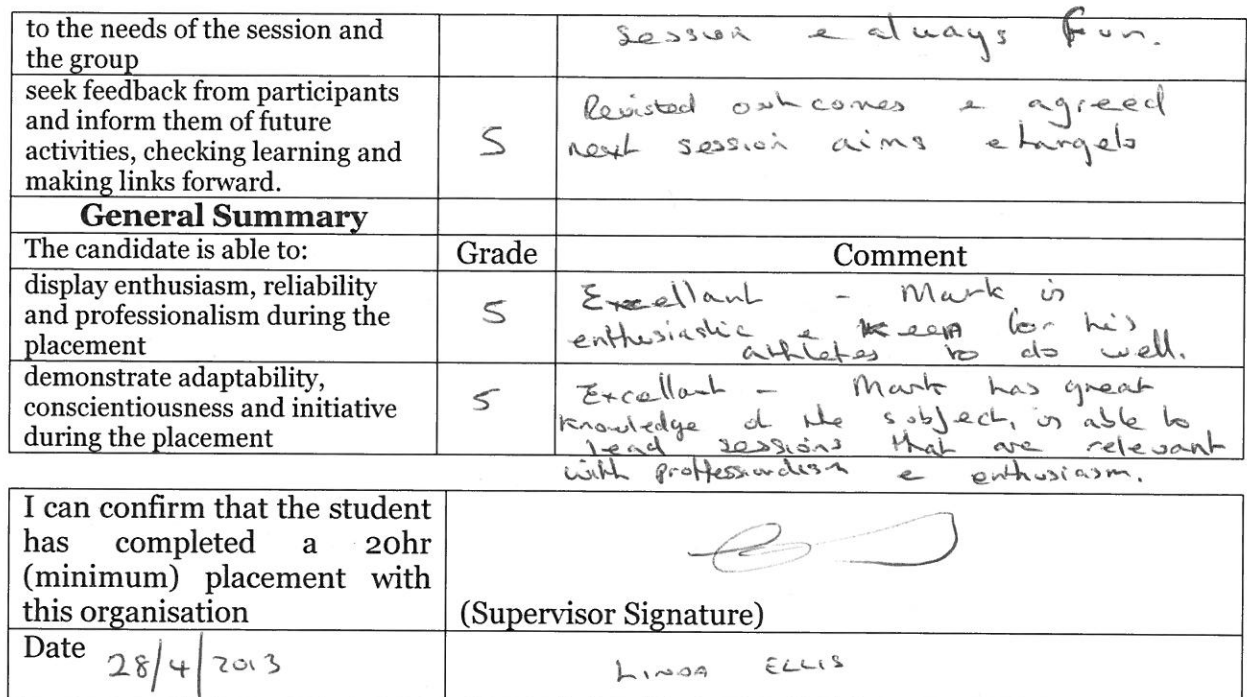 to the needs of the session and
the group
session e always fun.
seek feedback from participants
and inform them of future
activities, checking learning and
making links forward.
5
Revisted outcomes e agreed
next session aims e targets
General Summary
The candidate is able to:
Grade
Comment
display enthusiasm, reliability
and professionalism during the
placement
5
Excellant - Mark is
enthusiastic e keen for his
athletes to do well.
demonstrate adaptability,
conscientiousness and initiative
during the placement
5
Excellant - Mark has great
knowledge of the subject, is able to
lead sessions that are relevant
with proffessionalism e enthusiasm.
I can confirm that the student
has completed a 20hr
(minimum) placement with
this organisation
(Supervisor Signature)
Date 28/4/2013
LINDA ELLIS